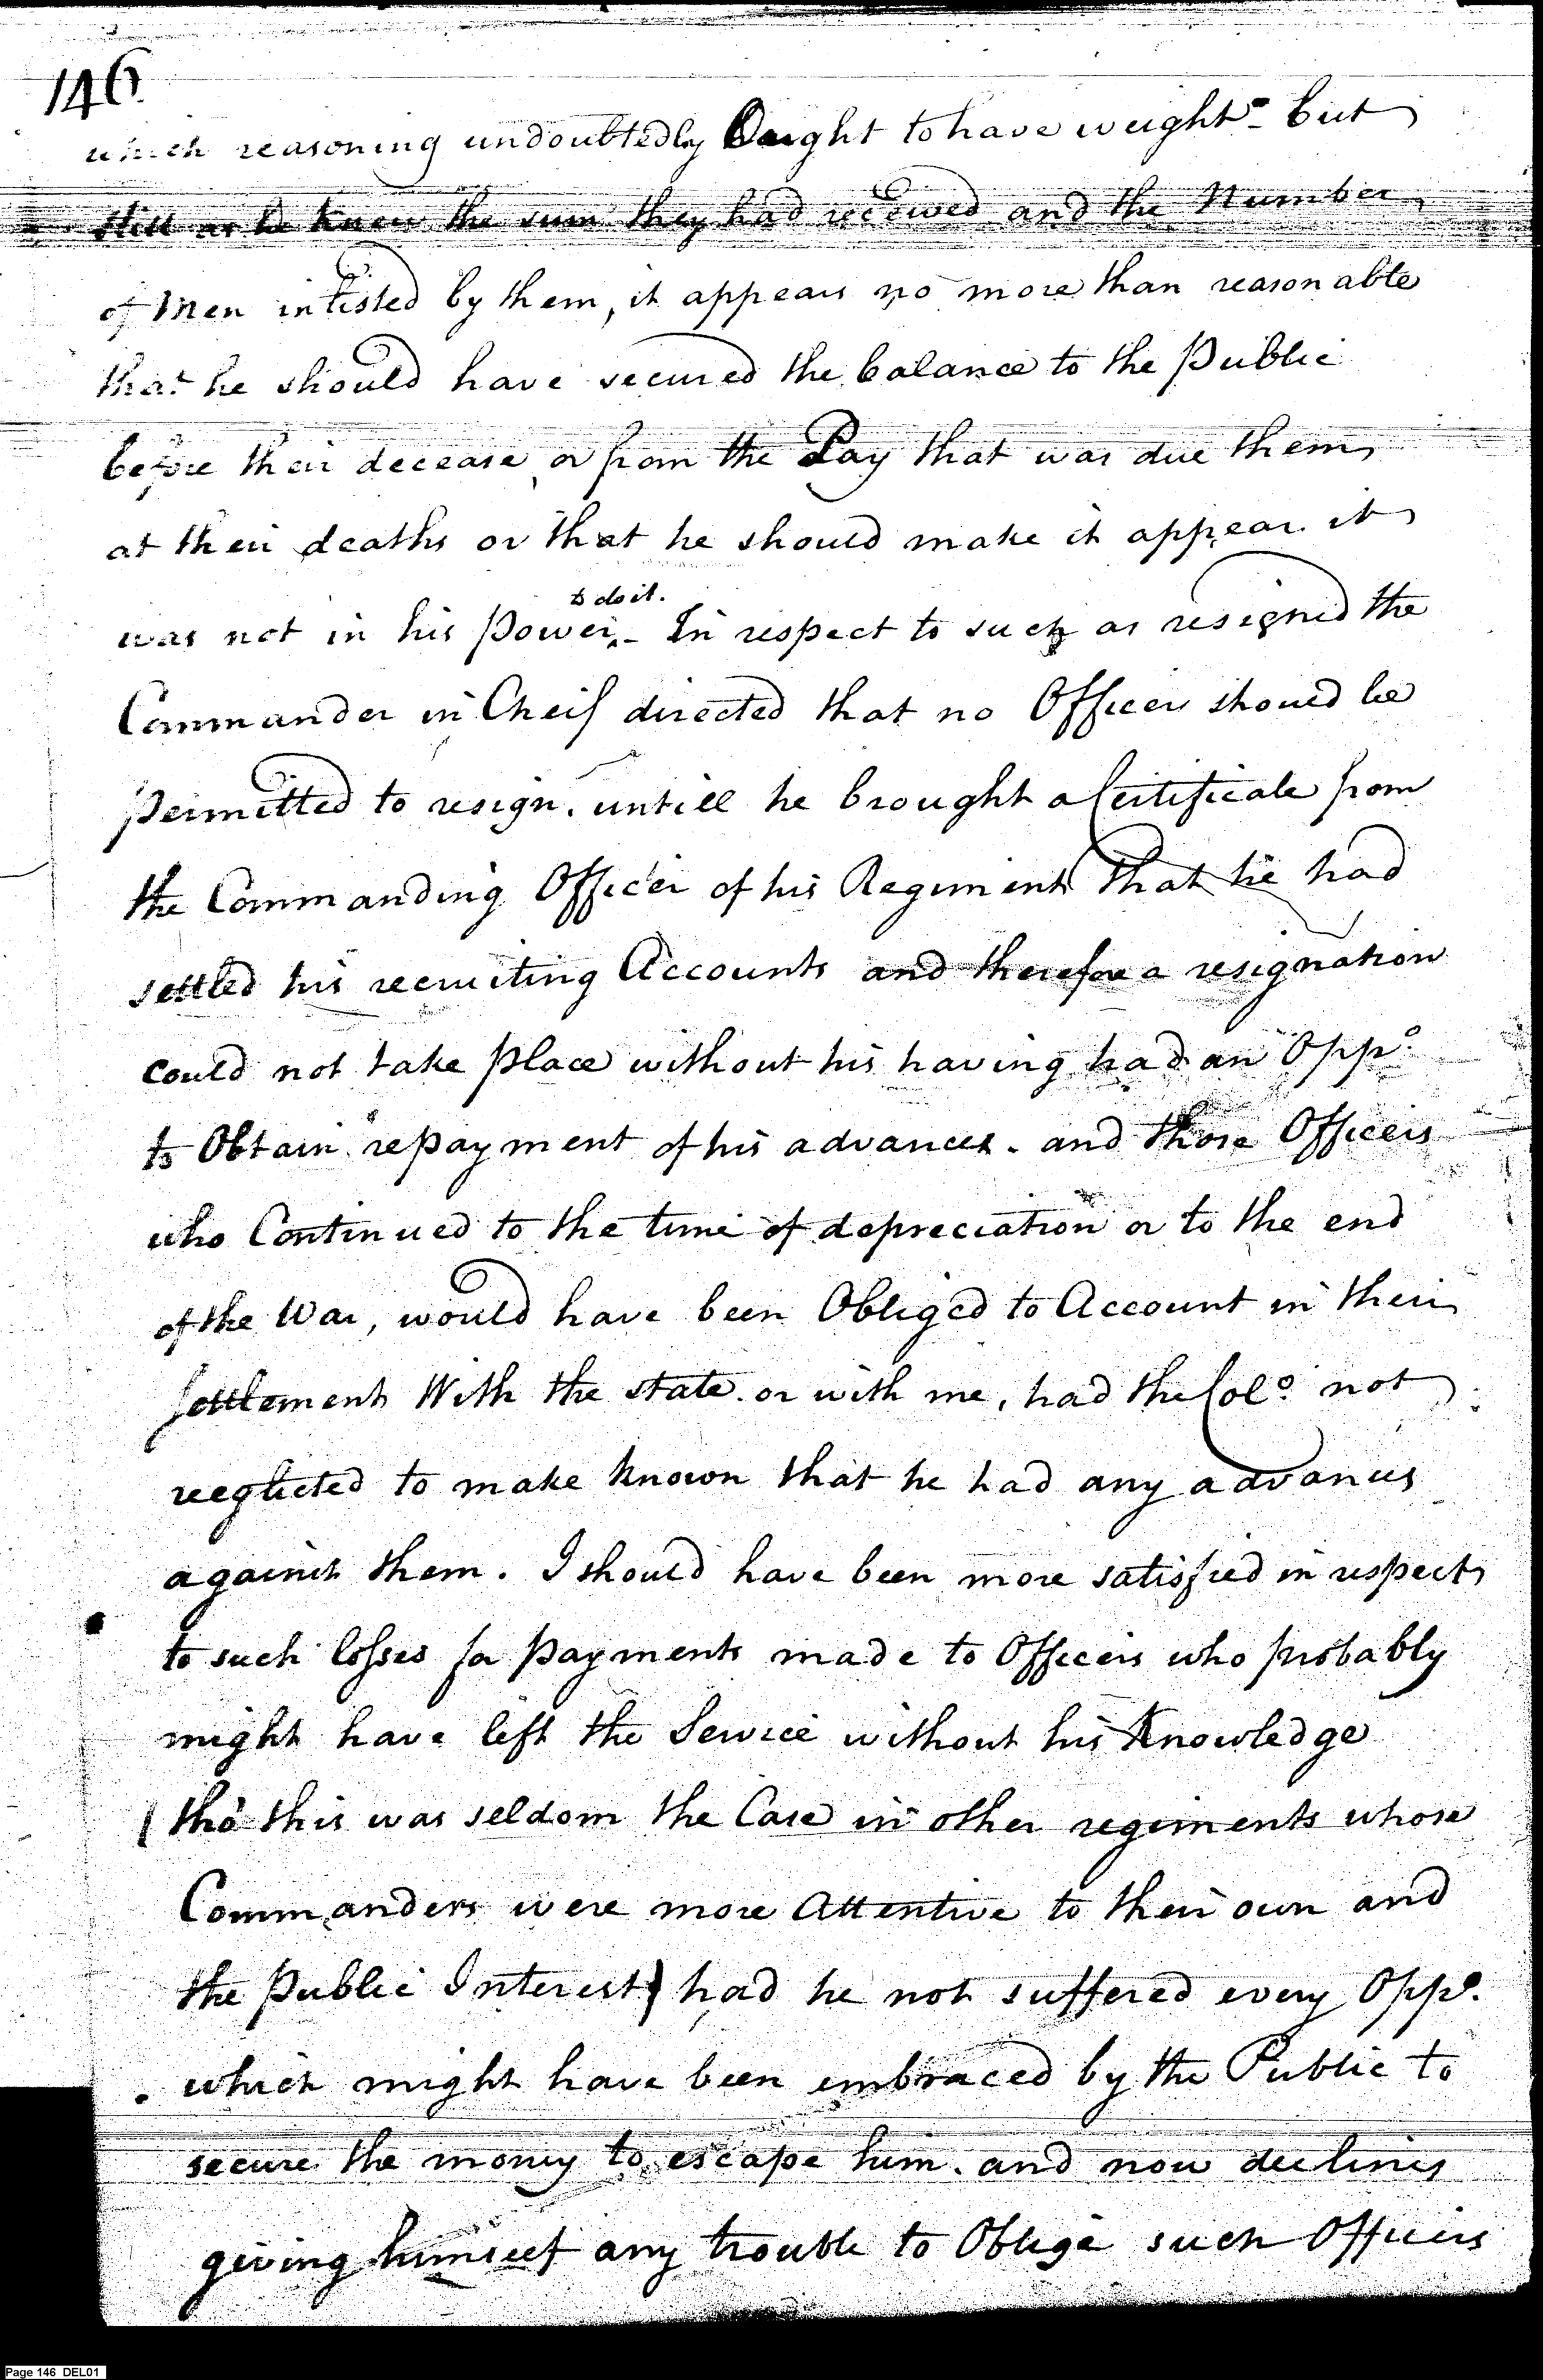 146
which reasoning undoubtedly Ought to have weight - but
still as he knew the sum they had received and the Number
of Men inlisted by them, it appears no more than reasonable
that he should have secured the balance to the Public
before their decease, or from the Pay that was due them
at their deaths or that he should make it appear it
to do it.
was not in his power. - In respect to such as resigned the
Commander in Cheif directed that no Officer should be
permitted to resign. untill he brought a Certificate from
the Commanding Officer of his Regiment that he had
settled his recruiting Accounts and therefore a resignation
could not take place without his having had an Oppo.
to Obtain repayment of his advances. and those Officers
who Continued to the time of depreciation or to the end
of the War, would have been Obliged to Account in their
Settlement With the state or with me, had the Colo. not
neglected to make known that he had any advances
against them. I should have been more satisfied in respect
to such losses for payments made to Officers who probably
might have left the Service without his Knowledge
(tho' this was seldom the Case in other regiments whose
Commanders were more Attentive to their own and
the Public Interest) had he not suffered every Oppo.
which might have been embraced by the Public to
secure the money to escape him. and now declines
giving himself any trouble to Oblige such Officers
Page 146 DEL01